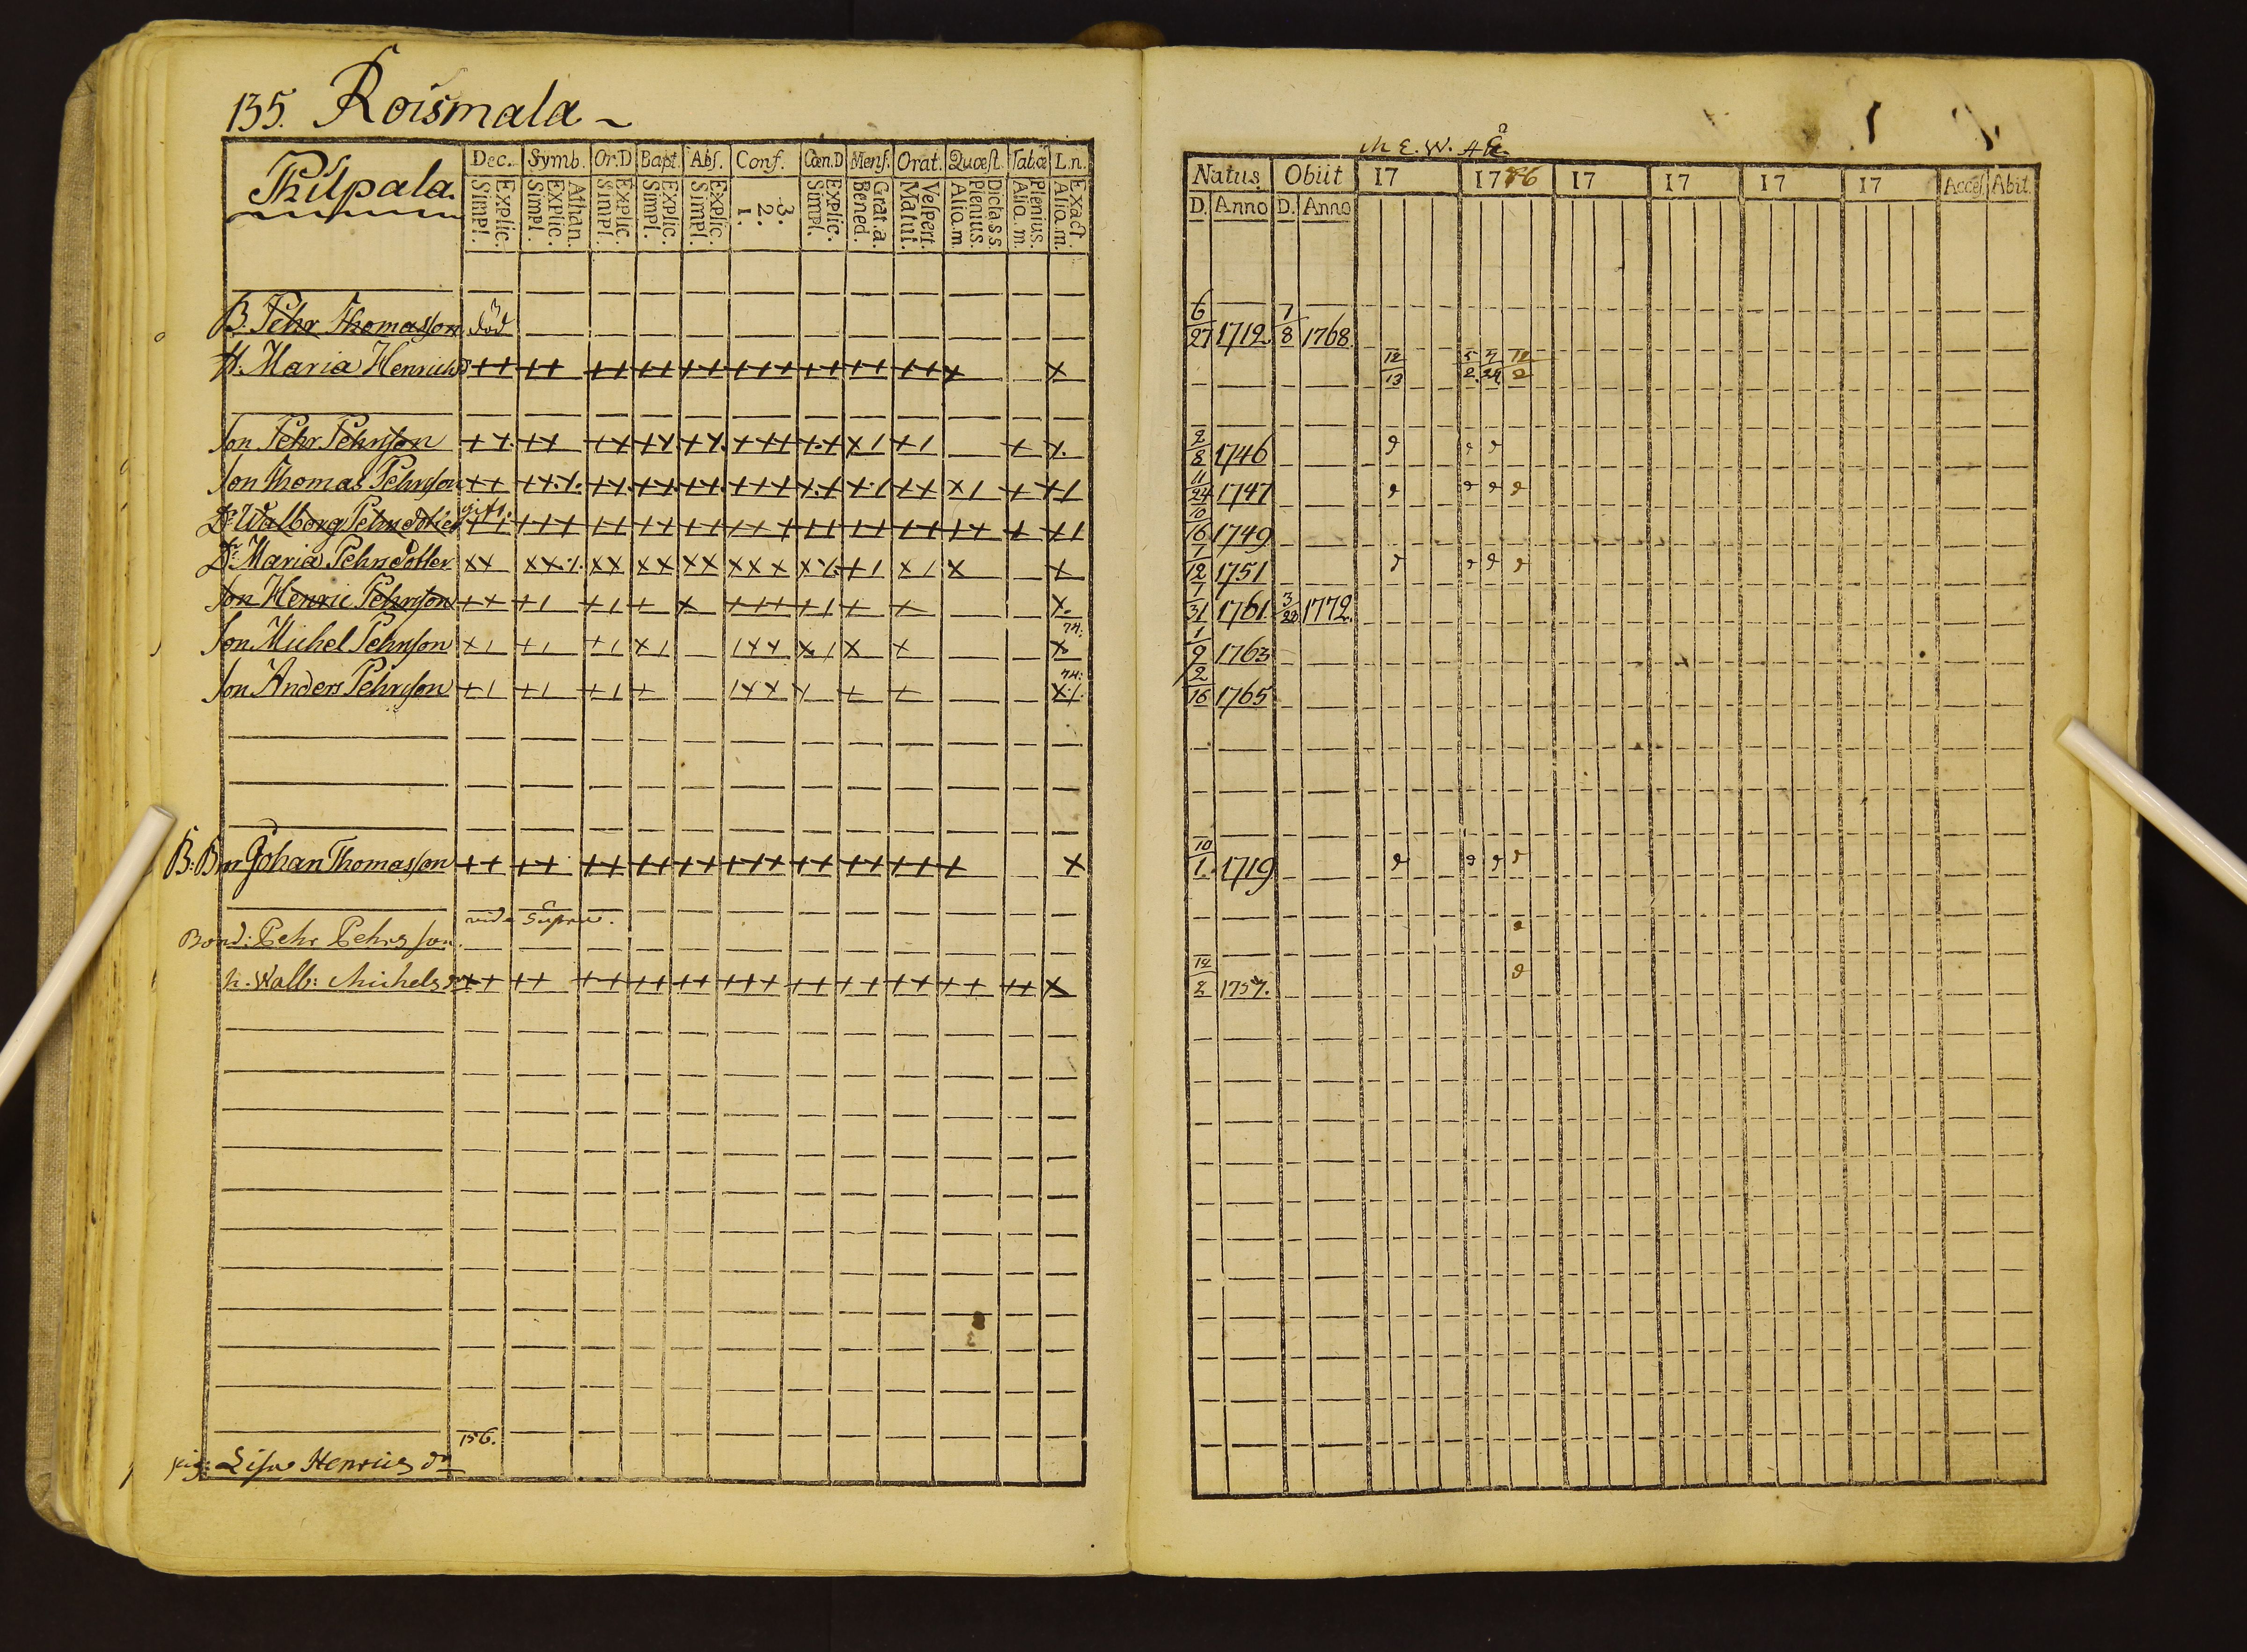 135. Roismala
Philpala.
Dec. Symb. Or.D Bapt. Abs. Conf. Cœn.D Mens. Orat. Quæst. Tabæ L.n.
Simpl. Explic. Simpl. Explic. Athan. Simpl. Explic. Simpl. Explic. Simpl. Explic. 1. 2. 3. Simpl. Explic. Bened. Grat.a. Matut. Vespert. Alio.m. Plenius. Dicta.s.s. Alio.m. Plenius. Alio.m. Exact.
B. Pehr Thomasson död
H. Maria Henrichsd
Son Pehr Pehrsson
Son Thomas Pehrsson
Dr Walborg Pehrsdotter gift.
Dr Maria Pehrsdotter
Son Henric Pehrsson
Son Michel Pehrsson 74.
Son Anders Pehrsson 74.
B: Bror Johan Thomasson
Bond: Pehr Pehrsson. vide supra.
h. Walb: Michelsdr
pig: Lisa Henricsdr 156.
Natus Obiit 17 1776 17 17 17 17 Acces. Abit.
D. Anno D. Anno
6/27 1712 7/8 1768.
12/13 5/2 4/24 12/2
2/8 1746
11/24 1747
10/16 1749
1/12 1751
7/31 1761 3/28 1772.
1/9 1763
2/16 1765
10/1. 1719
12/2 1757.